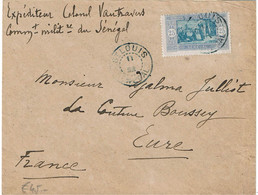 Expéditeur Colonel Vautravers
Comm^t milit^re du Sénégal
ST LOUIS
11
Monsieur Djalma Julliot
La Couture Boussey
Eure
France
€45.-